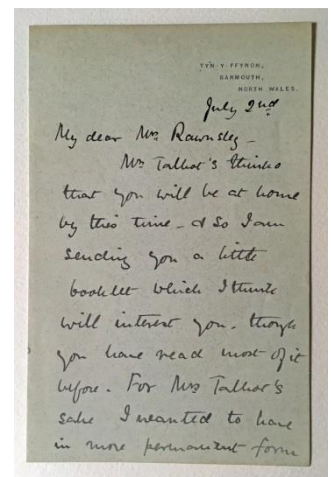 TYN-Y-FFYNON,
BARMOUTH,
NORTH WALES.
July 2nd
My dear Mrs Rawnsley -
Mrs Talbot's thinks
that you will be at home
by this time - & so I am
sending you a little
booklet which I think
will interest you. though
you have read most of it
before. For Mrs Talbot's
sake I wanted to have
in more permanent form